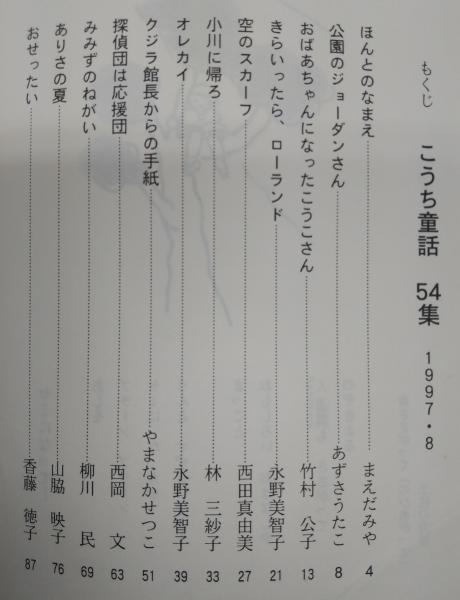 もくじ　こうち童話　54集　1997・8
ほんとのなまえ……まえだみや　4
公園のジョーダンさん……あずさうたこ　8
おばあちゃんになったこうこさん……竹村　公子　13
きらいったら、ローランド……永野美智子　21
空のスカーフ……西田真由美　27
小川に帰ろ……林　三紗子　33
オレカイ……永野美智子　39
クジラ館長からの手紙……やまなかせつこ　51
探偵団は応援団……西岡　文　63
みみずのねがい……柳川　民　69
ありさの夏……山脇　映子　76
おせったい……香藤　徳子　87